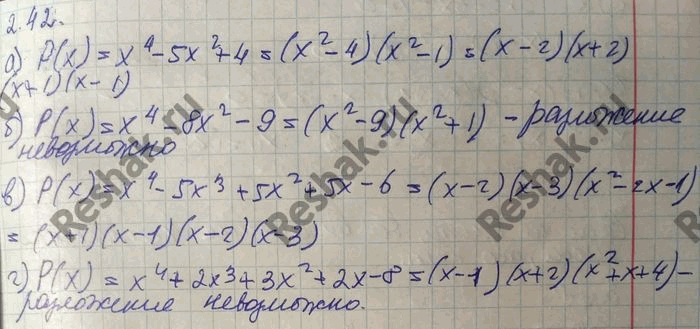 2.42.
а) P(x) = x⁴ - 5x² + 4 = (x² - 4)(x² - 1) = (x - 2)(x + 2)
(x+1)(x - 1)
б) P(x) = x⁴ - 8x² - 9 = (x² - 9)(x² + 1) - разложение
невозможно
в) P(x) = x⁴ - 5x³ + 5x² + 5x - 6 = (x - 2)(x - 3)(x² - 2x - 1)
= (x+1)(x - 1)(x - 2)(x - 3)
г) P(x) = x⁴ + 2x³ + 3x² + 2x - 8 = (x - 1)(x + 2)(x² + x + 4) -
разложение невозможно.
Reshak.ru
Reshak.ru
Reshak.ru
Reshak.ru